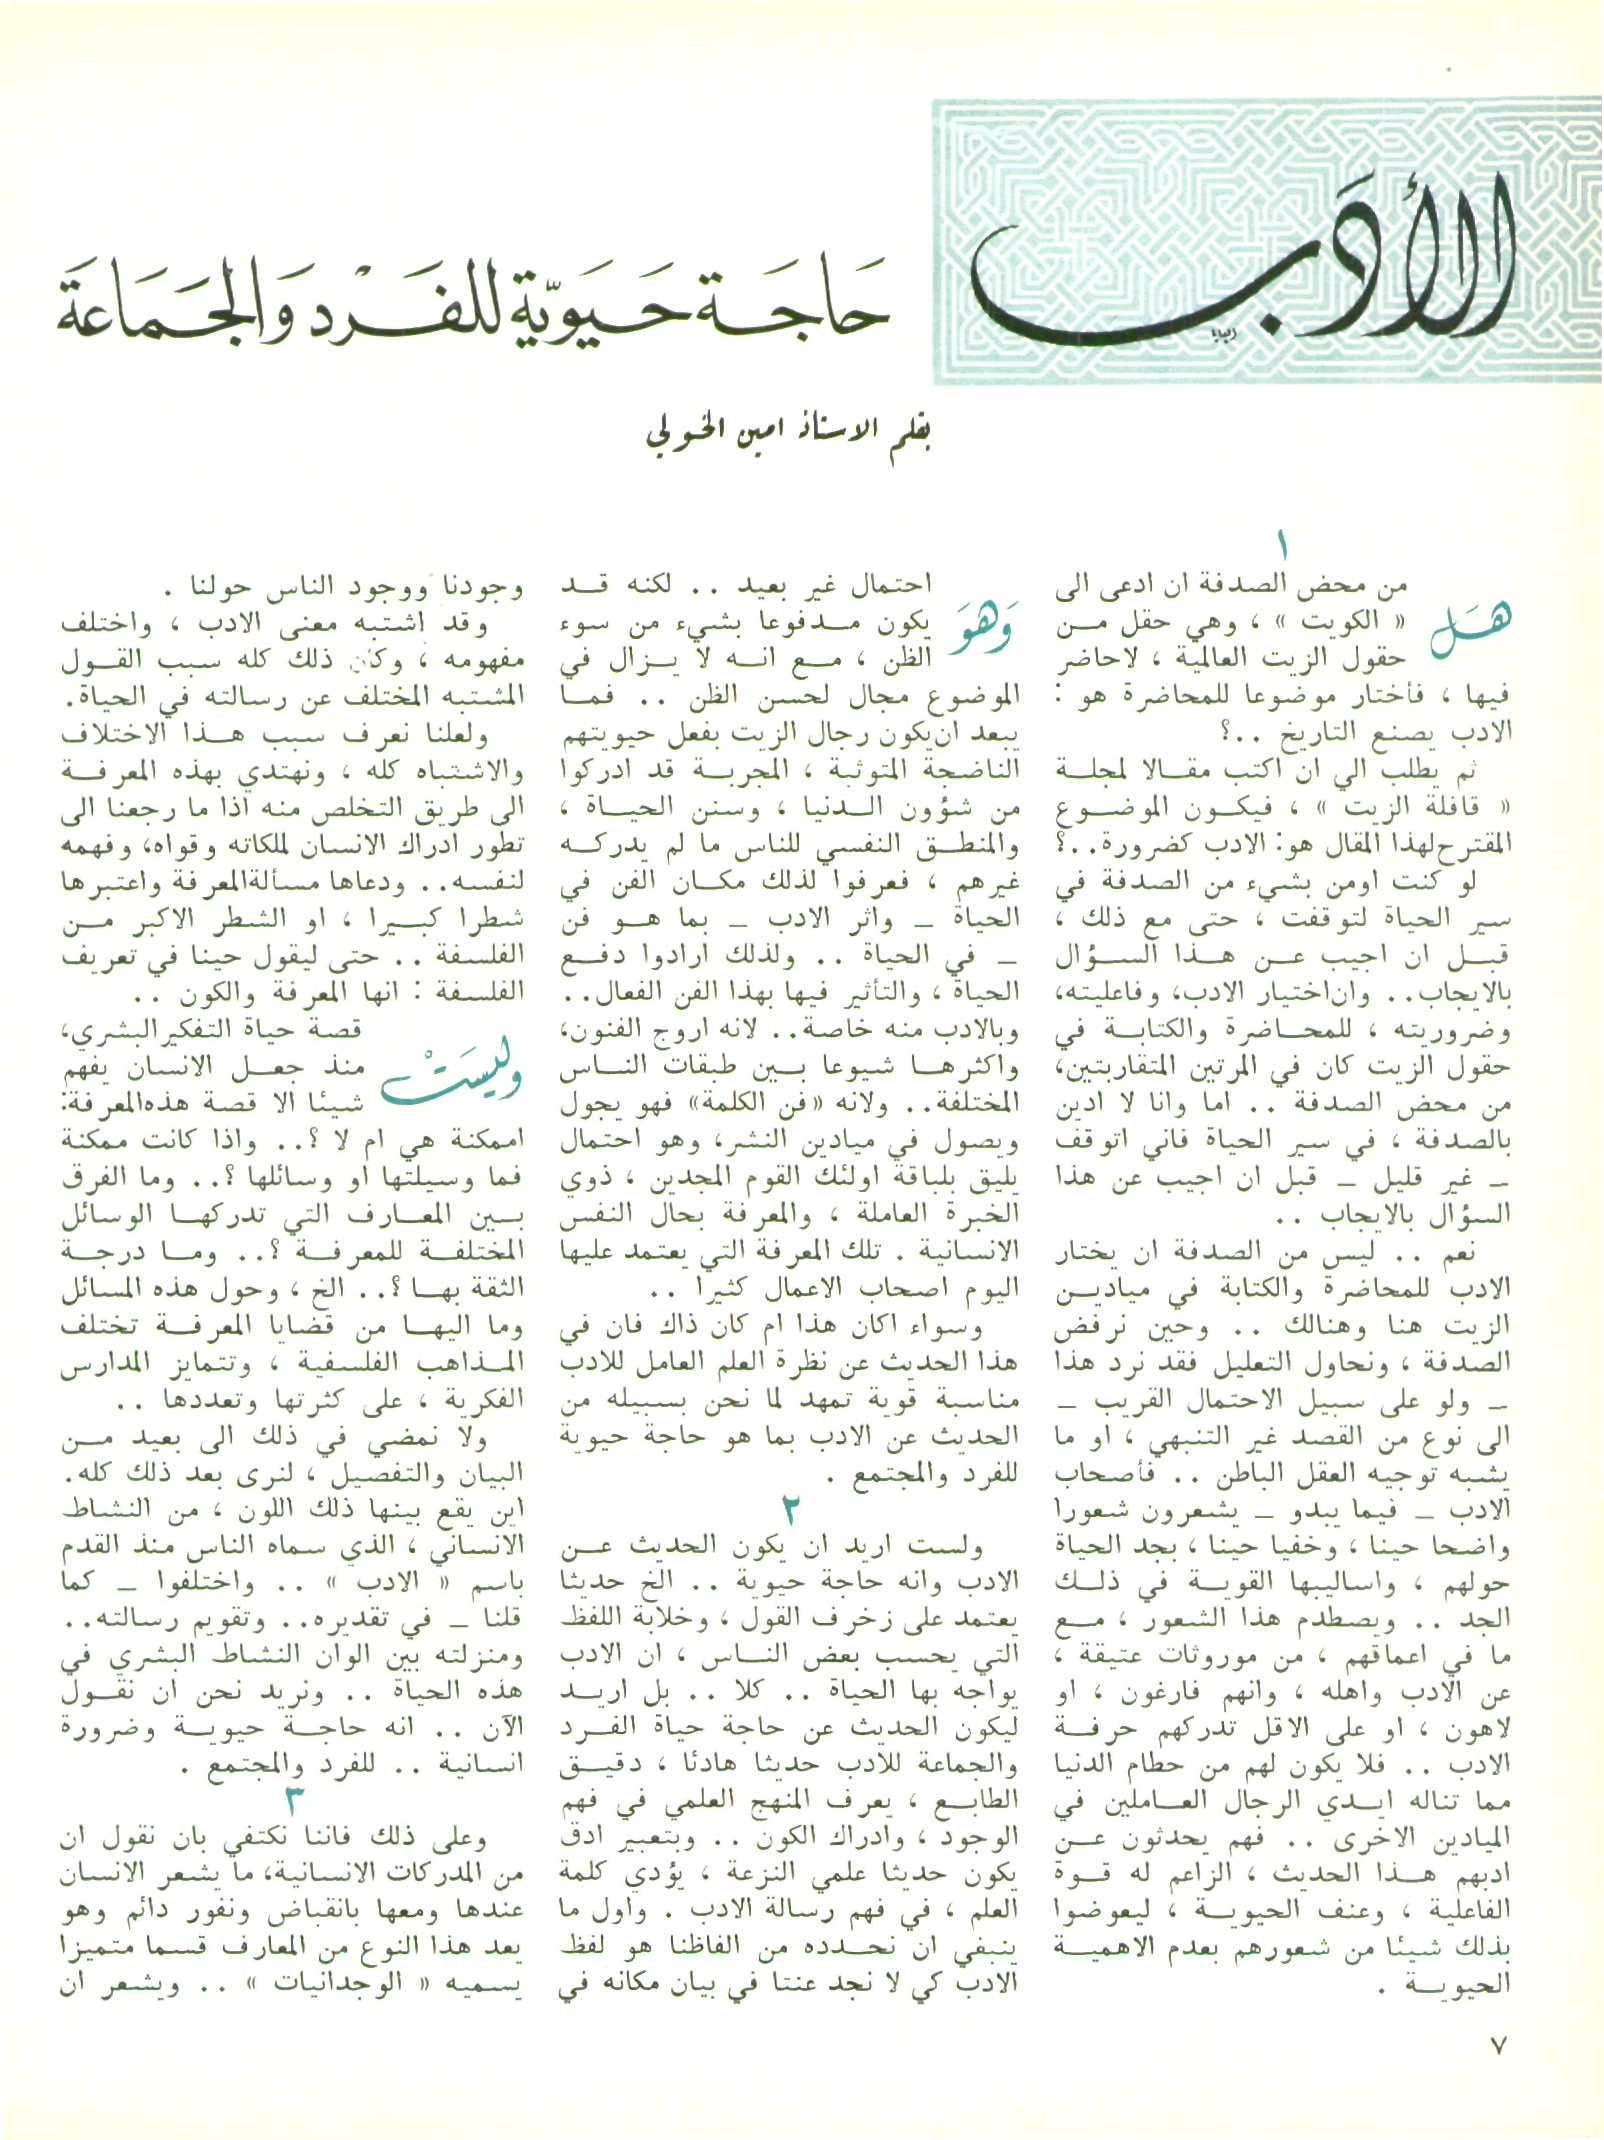 الأدَب
حَاجَة حَيَويّة للفَرْد وَالجَمَاعَة
بقلم الاستاذ امين الخولي
١
هَل من محض الصدفة ان ادعى الى
« الكويت » ، وهي حقل مـن
حقول الزيت العالمية ، لاحاضر
فيها ، فأختار موضوعا للمحاضرة هو :
الادب يصنع التاريخ ..؟
ثم يطلب الي ان اكتب مقـالا لمجلـة
« قافلة الزيت » ، فيكـون الموضـوع
المقترح لهذا المقال هو: الادب كضرورة..؟
لو كنت اومن بشيء من الصدفة في
سير الحياة لتوقفت ، حتى مع ذلك ،
قبـل ان اجيب عـن هـذا السـؤال
بالايجاب.. وان اختيار الادب، وفاعليته،
وضروريته ، للمحـاضرة والكتابـة في
حقول الزيت كان في المرتين المتقاربتين،
من محض الصدفة .. اما وانا لا ادين
بالصدفة ، في سير الحياة فاني اتوقف
ـ غير قليل ـ قبل ان اجيب عن هذا
السؤال بالايجاب ..
نعم .. ليس من الصدفة ان يختار
الادب للمحاضرة والكتابة في ميادين
الزيت هنا وهنالك .. وحين نرفض
الصدفة ، ونحاول التعليل فقد نرد هذا
ـ ولو على سبيل الاحتمال القريب ـ
الى نوع من القصد غير التنبهي ، او ما
يشبه توجيه العقل الباطن .. فأصحاب
الادب ـ فيما يبدو ـ يشعرون شعورا
واضحا حينا ، وخفيا حينا ، بجد الحياة
حولهم ، واساليبها القويـة في ذلـك
الجد .. ويصطدم هذا الشعور ، مـع
ما في اعماقهم ، من موروثات عتيقة ،
عن الادب واهله ، وانهم فارغون ، او
لاهون ، او على الاقل تدركهم حرفـة
الادب .. فلا يكون لهم من حطام الدنيا
مما تناله ايـدي الرجال العـاملين في
الميادين الاخرى .. فهم يحدثون عـن
ادبهم هـذا الحديث ، الزاعم له قـوة
الفاعلية ، وعنف الحيويـة ، ليعوضوا
بذلك شيئا من شعورهم بعدم الاهميـة
الحيويـة .
وَهوَ احتمال غير بعيد .. لكنه قـد
يكون مـدفوعا بشيء من سوء
الظن ، مـع انـه لا يـزال في
الموضوع مجال لحسن الظن .. فمـا
يبعد ان يكون رجال الزيت بفعل حيويتهم
الناضجة المتوثبة ، المجربـة قد ادركوا
من شؤون الـدنيا ، وسنن الحيـاة ،
والمنطـق النفسي للناس ما لم يدركـه
غيرهم ، فعرفوا لذلك مكـان الفن في
الحياة ـ واثر الادب ـ بما هـو فن
ـ في الحياة .. ولذلك ارادوا دفـع
الحياة ، والتأثير فيها بهذا الفن الفعال..
وبالادب منه خاصة.. لانه اروج الفنون،
واكثرهـا شيوعا بـين طبقات النـاس
المختلفة.. ولانه «فن الكلمة» فهو يجول
ويصول في ميادين النشر، وهو احتمال
يليق بلباقة اولئك القوم المجدين ، ذوي
الخبرة العاملة ، والمعرفة بحال النفس
الانسانية . تلك المعرفة التي يعتمد عليها
اليوم اصحاب الاعمال كثيرا ..
وسواء اكان هذا ام كان ذاك فان في
هذا الحديث عن نظرة العلم العامل للادب
مناسبة قوية تمهد لما نحن بسبيله من
الحديث عن الادب بما هو حاجة حيوية
للفرد والمجتمع .
٢
ولست اريد ان يكون الحديث عـن
الادب وانه حاجة حيوية .. الخ حديثا
يعتمد على زخرف القول ، وخلابة اللفظ
التي يحسب بعض النـاس ، ان الادب
يواجه بها الحياة .. كلا .. بل اريـد
ليكون الحديث عن حاجة حياة الفـرد
والجماعة للادب حديثا هادئا ، دقيـق
الطابـع ، يعرف المنهج العلمي في فهم
الوجود ، وادراك الكون .. وبتعبير ادق
يكون حديثا علمي النزعة ، يؤدي كلمة
العلم ، في فهم رسالة الادب . واول ما
ينبغي ان نحـدده من الفاظنا هو لفظ
الادب كي لا نجد عنتا في بيان مكانه في
وجودنا ووجود الناس حولنا .
وقد اشتبه معنى الادب ، واختلف
مفهومه ، وكان ذلك كله سبب القـول
المشتبه المختلف عن رسالته في الحياة.
ولعلنا نعرف سبب هـذا الاختلاف
والاشتباه كله ، ونهتدي بهذه المعرفـة
الى طريق التخلص منه اذا ما رجعنا الى
تطور ادراك الانسان لملكاته وقواه، وفهمه
لنفسه.. ودعاها مسألة المعرفة واعتبرها
شطرا كبـيرا ، او الشطر الاكبر مـن
الفلسفة .. حتى ليقول حينا في تعريف
الفلسفة : انها المعرفة والكون ..
وليسَتْ قصة حياة التفكير البشري،
منذ جعـل الانسان يفهم
شيئا الا قصة هذه المعرفة:
اممكنة هي ام لا ؟.. واذا كانت ممكنة
فما وسيلتها او وسائلها ؟.. وما الفرق
بـين المعـارف التي تدركهـا الوسائل
المختلفـة للمعرفـة ؟.. ومـا درجـة
الثقة بهـا ؟.. الخ ، وحول هذه المسائل
وما اليهـا من قضايا المعرفـة تختلف
المـذاهب الفلسفية ، وتتمايز المدارس
الفكرية ، على كثرتها وتعددها ..
ولا نمضي في ذلك الى بعيد مـن
البيان والتفصيل ، لنرى بعد ذلك كله.
اين يقع بينها ذلك اللون ، من النشاط
الانساني ، الذي سماه الناس منذ القدم
باسم « الادب » .. واختلفوا ـ كما
قلنا ـ في تقديره.. وتقويم رسالته..
ومنزلته بين الوان النشاط البشري في
هذه الحياة .. ونريد نحن ان نقـول
الآن .. انه حاجـة حيويـة وضرورة
انسانية .. للفرد والمجتمع .
٣
وعلى ذلك فاننا نكتفي بان نقول ان
من المدركات الانسانية، ما يشعر الانسان
عندها ومعها بانقباض ونفور دائم وهو
يعد هذا النوع من المعارف قسما متميزا
يسميه « الوجدانيات » .. ويشعر ان
٧